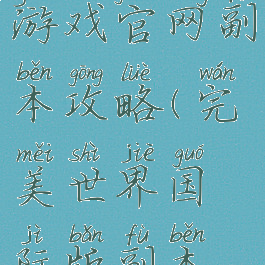 游戏官网副
běn gōng lüè wán
本攻略(完
měi shì jiè guó
美世界国
jì bǎn fù běn
际版副本